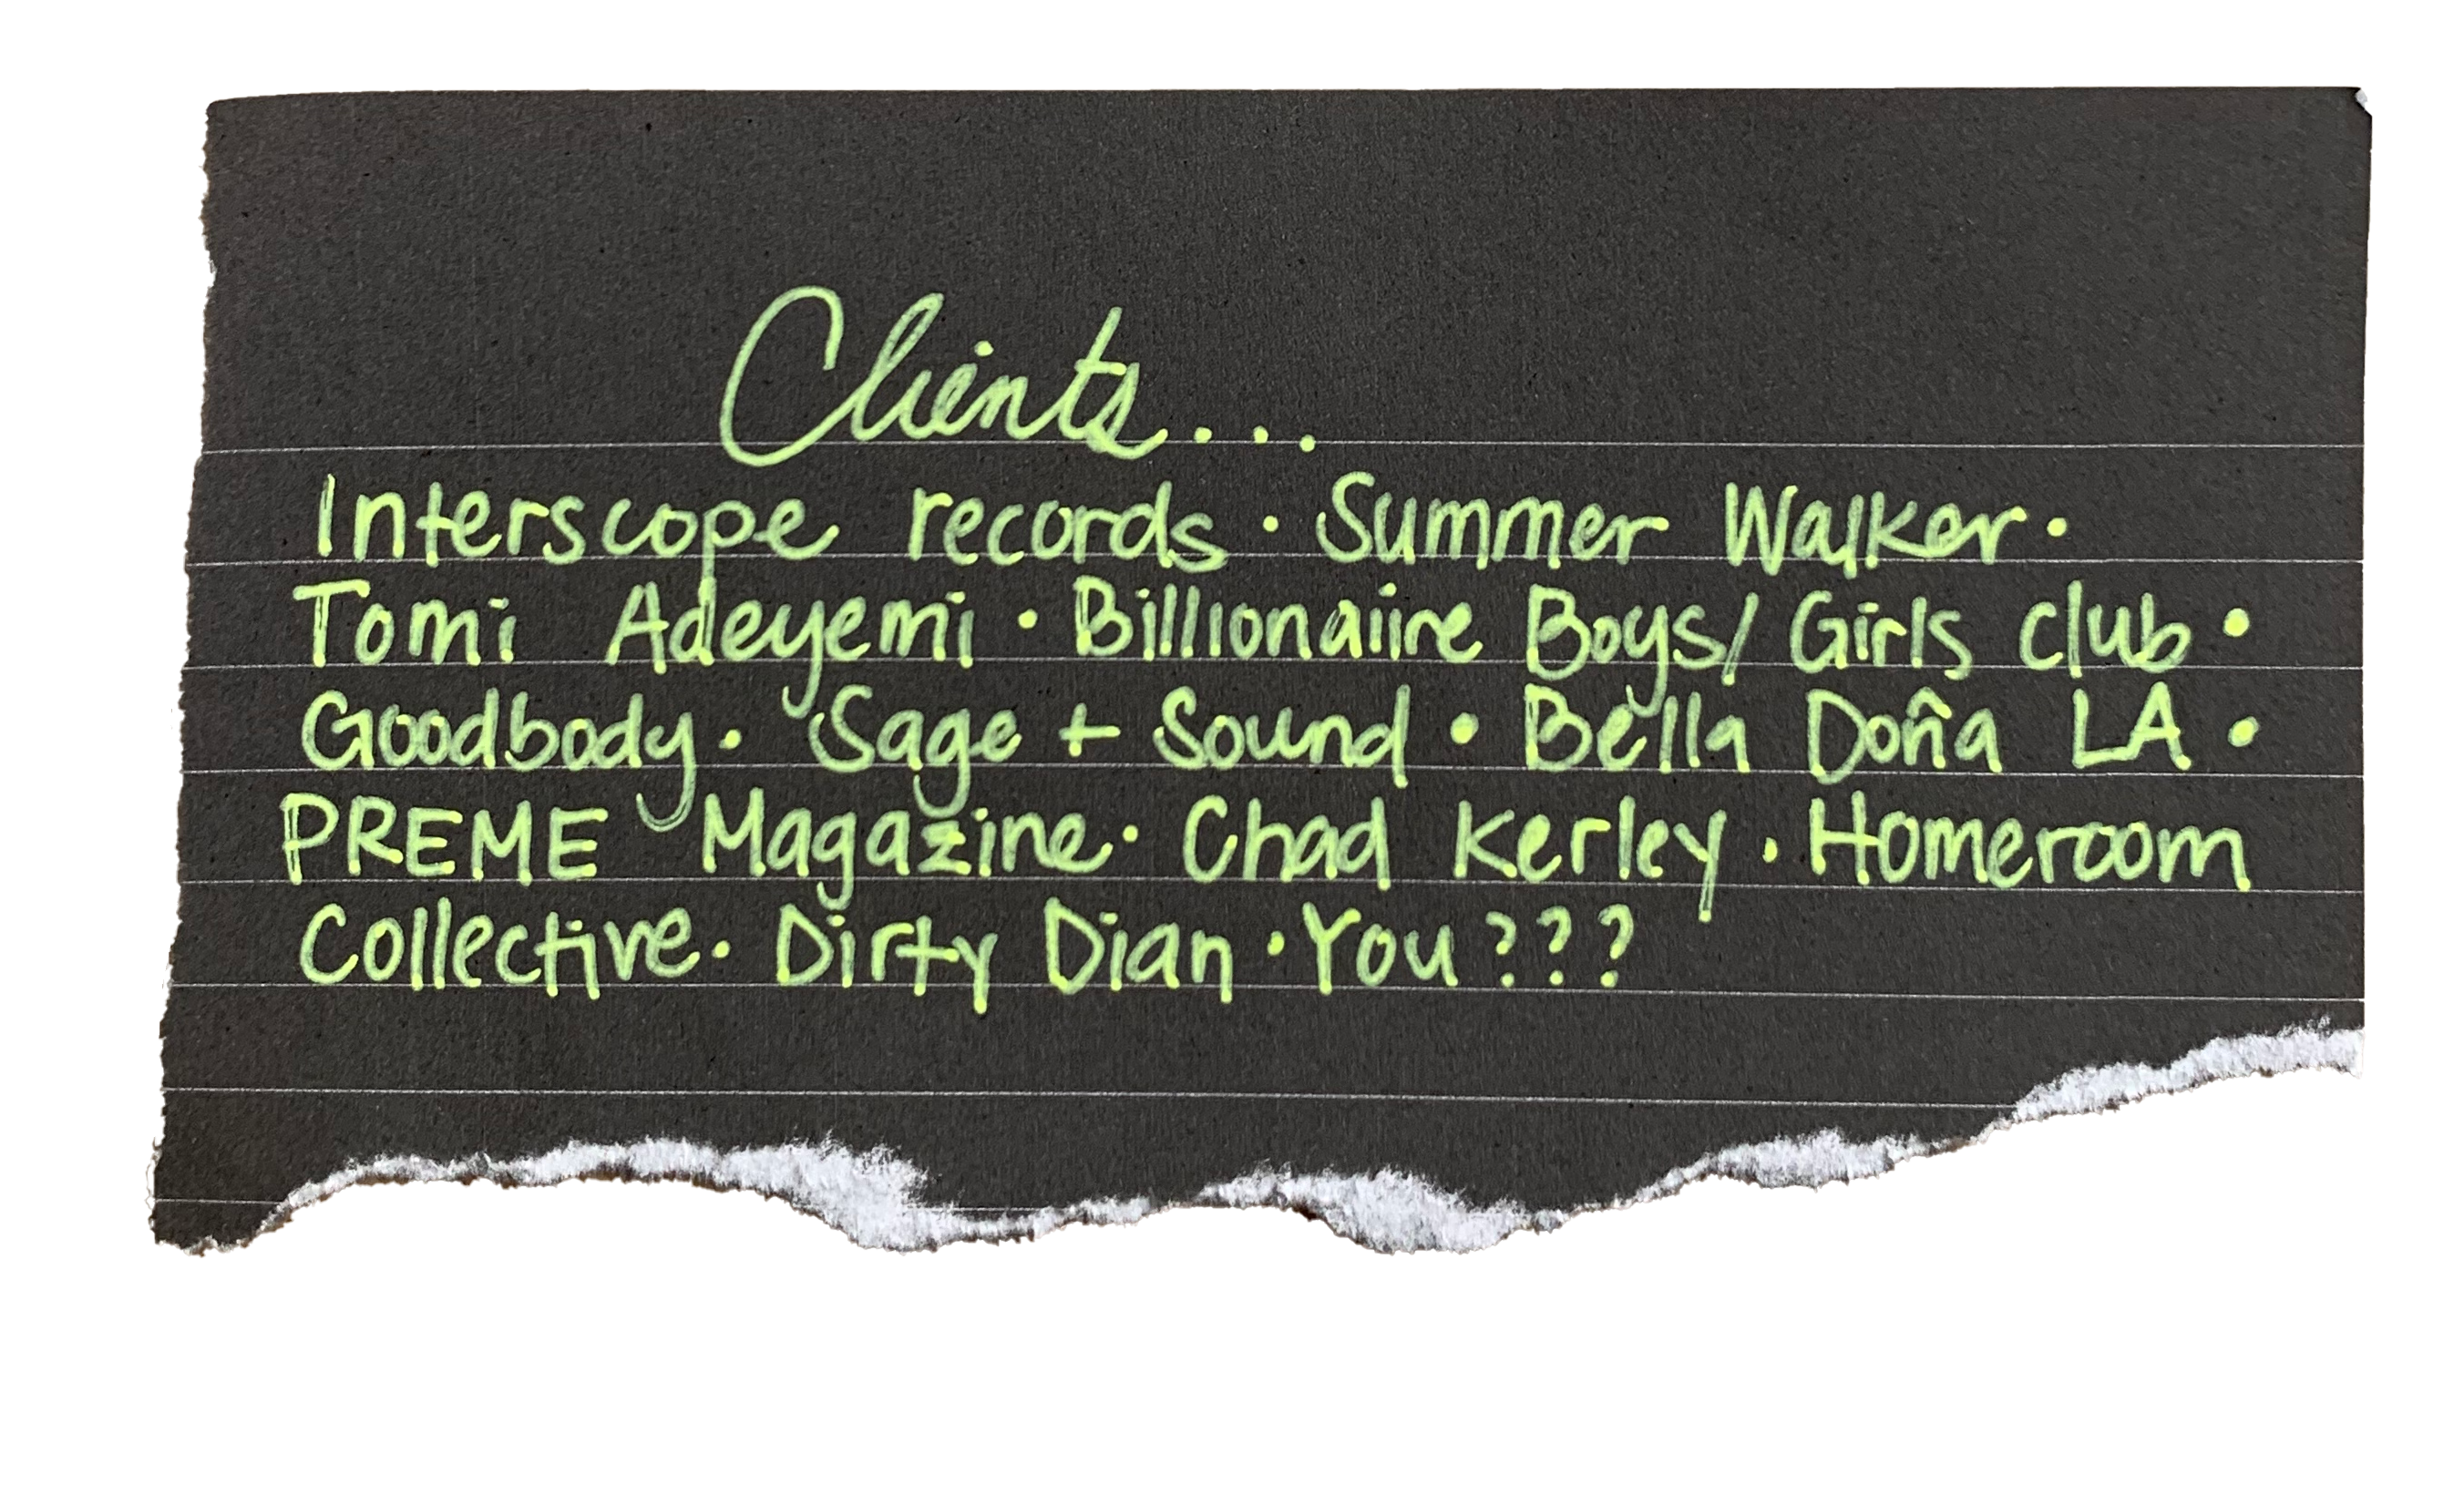 Clients....
Interscope records · Summer Walker ·
Tomi Adeyemi · Billionaiire Boys/ Girls club ·
Goodbody · Sage + Sound · Bella Doña LA ·
PREME Magazine · Chad Kerley · Homeroom
Collective · Dirty Dian · You???